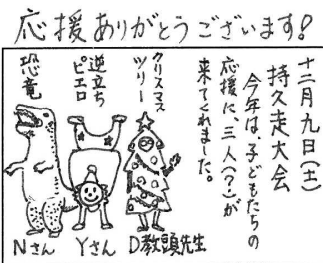 応援ありがとうございます!
十二月九日(土)
持久走大会
今年は、子どもたちの
応援に、三人(?)が
来てくれました。
クリスマス
ツリー
逆立ち
ピエロ
恐竜
Nさん
Yさん
D教頭先生